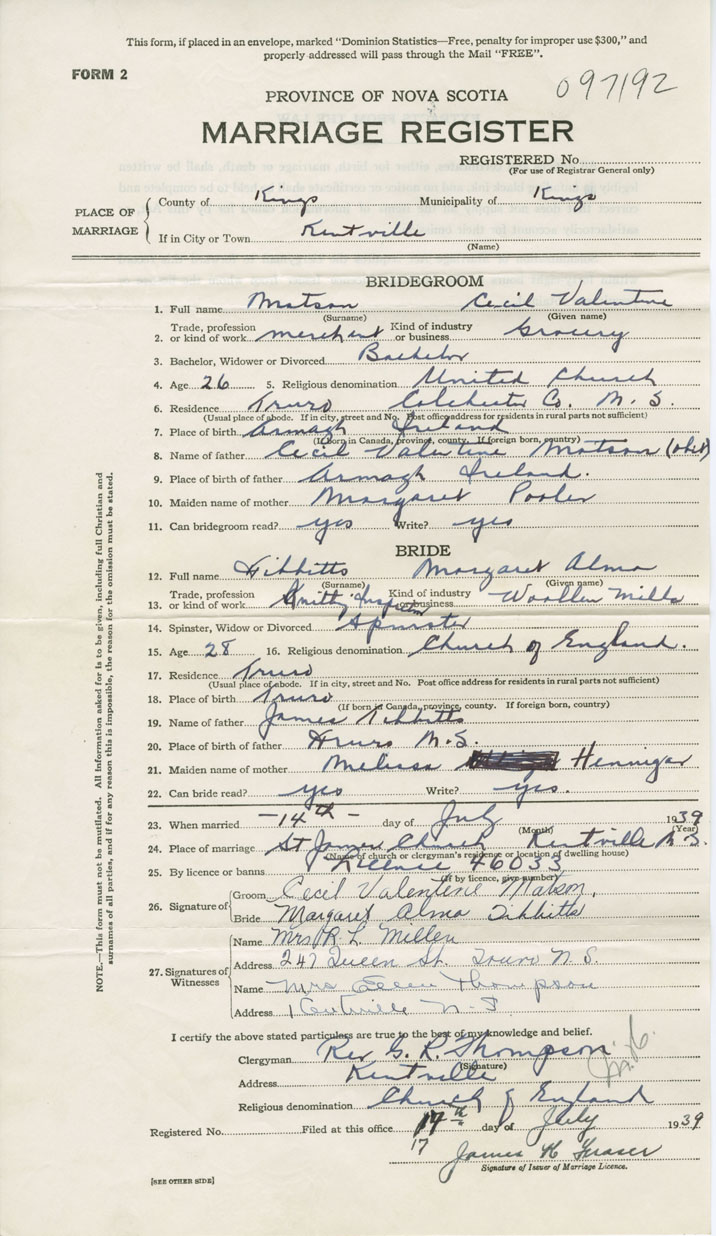 This form, if placed in an envelope, marked "Dominion Statistics—Free, penalty for improper use $300," and
properly addressed will pass through the Mail "FREE".
FORM 2
097192
PROVINCE OF NOVA SCOTIA
MARRIAGE REGISTER
REGISTERED No.
(For use of Registrar General only)
PLACE OF MARRIAGE
County of Kings Municipality of Kings
If in City or Town Kentville
(Name)
BRIDEGROOM
1. Full name Matson Cecil Valentine
(Surname) (Given name)
2. Trade, profession or kind of work merchant Kind of industry or business Grocery
3. Bachelor, Widower or Divorced Bachelor
4. Age 26 5. Religious denomination United Church
6. Residence Truro Colchester Co. N. S.
(Usual place of abode. If in city, street and No. Post office address for residents in rural parts not sufficient)
7. Place of birth Armagh Ireland
(If born in Canada, province, county. If foreign born, country)
8. Name of father Cecil Valentine Matson
9. Place of birth of father Armagh Ireland.
10. Maiden name of mother Margaret Pooler
11. Can bridegroom read? yes Write? yes
BRIDE
12. Full name Tibbitts Margaret Alma
(Surname) (Given name)
13. Trade, profession or kind of work Kind of industry or business Woollen Mills
14. Spinster, Widow or Divorced Spinster
15. Age 28 16. Religious denomination Church of England.
17. Residence Truro
(Usual place of abode. If in city, street and No. Post office address for residents in rural parts not sufficient)
18. Place of birth Truro
(If born in Canada, province, county. If foreign born, country)
19. Name of father James Tibbitts
20. Place of birth of father Truro N.S.
21. Maiden name of mother Melissa Hennigar
22. Can bride read? yes Write? yes.
23. When married -14th- day of July 1939
(Month) (Year)
24. Place of marriage St James Church Kentville N. S.
(Name of church or clergyman's residence or location of dwelling house)
25. By licence or banns License 46033
(If by licence, give number)
26. Signature of
Groom Cecil Valentine Matson.
Bride Margaret Alma Tibbitts
27. Signatures of Witnesses
Name Mrs R. L. Millen
Address 247 Queen St. Truro N. S.
Name Mrs Thompson
Address Kentville N. S
I certify the above stated particulars are true to the best of my knowledge and belief.
Clergyman Rev G. R. Thompson
(Signature)
Address Kentville
Religious denomination Church of England
Registered No. Filed at this office 17th day of July 1939
17
James H Fraser
Signature of Issuer of Marriage Licence.
[SEE OTHER SIDE]
NOTE.—This form must not be mutilated. All information asked for is to be given, including full Christian and
surnames of all parties, and if for any reason this is impossible, the reason for the omission must be stated.